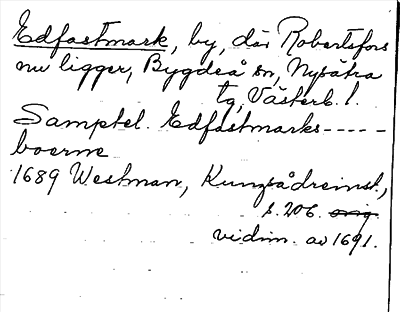 Edfastmark, by, där Robertsfors
nu ligger, Bygdeå sn, Nysätra
tg, Västerb. l.
Samptel. Edfastmarks-----
boerne
1689 Westman, Kungsådreinst.,
s. 206. orig.
vidim. av 1691.